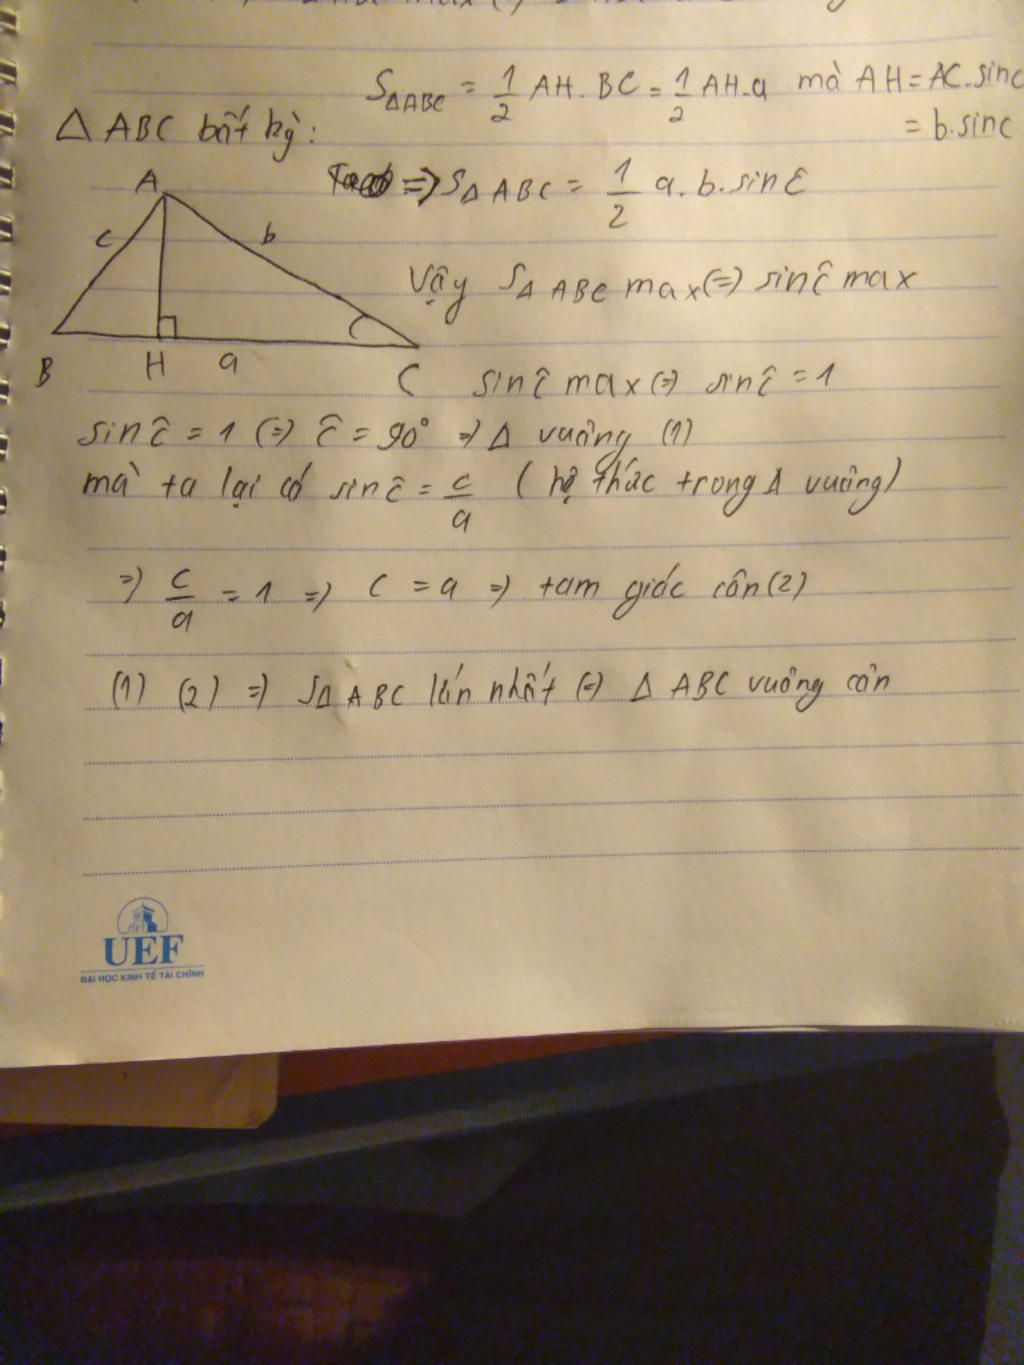 S△ABC = 1/2 AH. BC = 1/2 AH.a mà AH = AC.sinc
= b.sinc
△ ABC bất kỳ:
=> S△ ABC = 1/2 a.b.sinĉ
A
c b
B H a C
Vậy S△ ABC max (=) sinĉ max
sinĉ max (=) sinĉ = 1
sinĉ = 1 (=) ĉ = 90° => △ vuông (1)
mà ta lại có sinĉ = c/a (hệ thức trong △ vuông)
=> c/a = 1 => c = a => tam giác cân (2)
(1) (2) => S△ ABC lớn nhất (=) △ ABC vuông cân
UEF
ĐẠI HỌC KINH TẾ TÀI CHÍNH